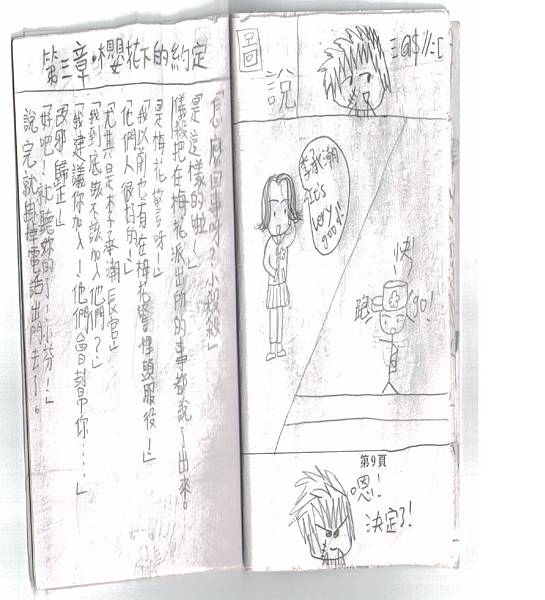 第三章•櫻花下的約定
「怎麼回事呀？小殺殺」
「是這樣的啦！」
儀殺把在梅花派出所的事都說了出來。
「是梅花警局呀！」
「我以前也有在梅花警律頭服役！」
「他們人很好的！」
「尤其是李承潮長官」
「我到底該不該加入他們？」
「我建議你加入！他們會幫你……」
「改邪歸正」
「好吧！就聽妳的了！小芬！」
說完就掛掉電話出門去了。
圖說
三@$//=[
李承潮
It's
very
good!
快
跟
go!
第9頁
嗯!
決定了!